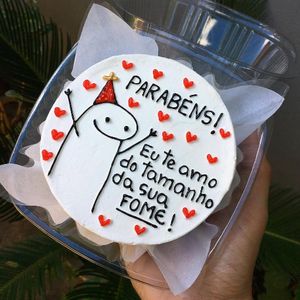 PARABÉNS!
Eu te amo
do tamanho
da sua
FOME!